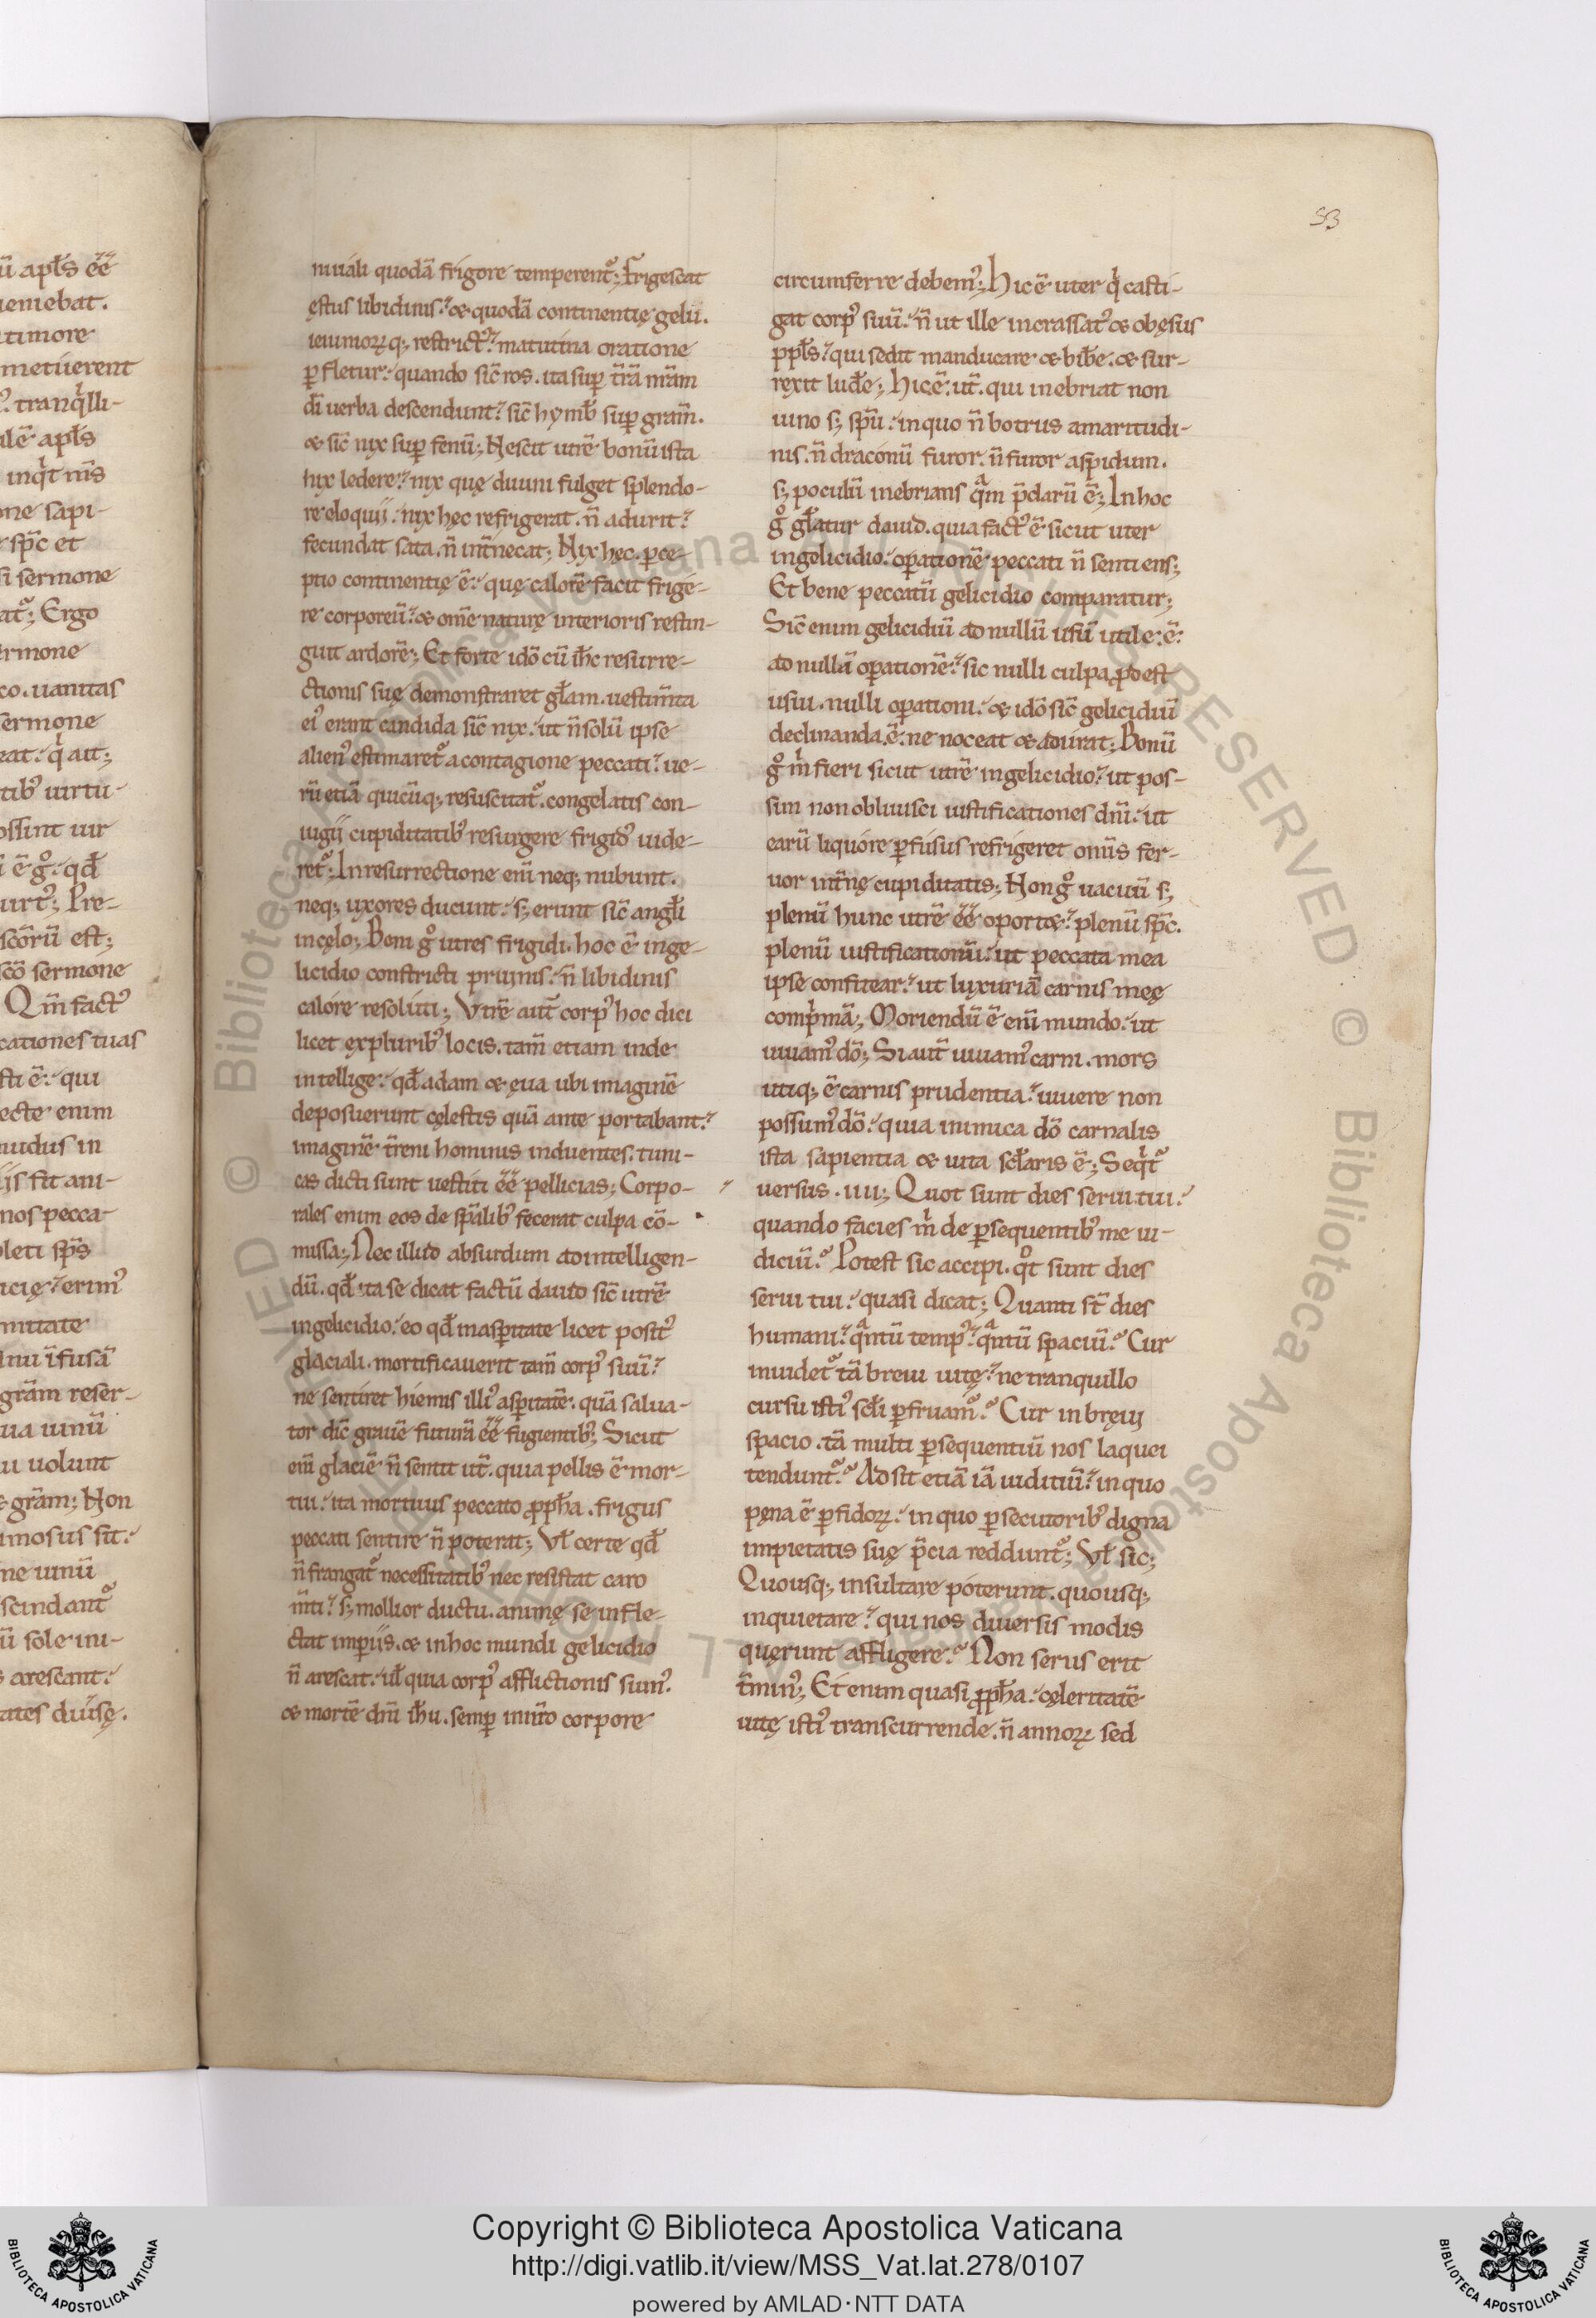 ũ apłs ẽẽ
ueniebat.
timore
metuerent
tranqͥlli-
apłs
inqͥt
sapi-
sp̃c et
si sermone
Ergo
ermone
co. uanitas
sermone
rat. qͥ ait;
tibꝰ uirtu-
ossint uir
ẽ gͦ. qđ
Pre-
scõrũ est;
scõ sermone
Qm̃ factꝰ
cationes tuas
sti ẽ. qui
ecte enim
nudus in
fit ani-
nos pecca-
pleti sp̃s
erimꝰ
nuitate
ĩfusã
grãm reser-
uinũ
uolunt
grãm; Non
imosus sit.
ne uinũ
scindantᷣ
ũ sole ini-
arescant.
53
niuali quodã frigore temperentᷣ; Frigescat
ęstus libidinis. & quodã continentię gelu.
ieiuniorꝝ q; restrictꝰ. matutina oratione
ꝑfletur. quando sic̃ ros. ita suꝑ t̃rã mãm
dĩ uerba descendunt. sic̃ hymƀ suꝑ gram̃.
& sic̃ nix suꝑ fenũ; Nescit utrẽ bonũ ista
nix ledere. nix quę diuini fulget splendo-
re eloquii. nix hęc refrigerat. ñ adurit.
fecundat sata. ñ int̃necat; Nix hęc. ꝑce-
ptio continentię ẽ. quę calorẽ facit frige-
re corporeũ. & om̃e naturę interioris restin-
guit ardorẽ; Et forte idõ cũ ih̃c resurre-
ctionis suę demonstraret głam. uestim̃ta
eiꝰ erant candida sic̃ nix. ut ñ solũ ipse
alienꝰ estimaretᷣ a contagione peccati. ue-
rũ etiã quicũq; resuscitatᷣ. congelatis con-
iugii cupiditatibꝰ resurgere frigidꝰ uide-
retᷣ; In resurrectione eni᷃ neq; nubunt.
neq; uxores ducunt. s; erunt sic̃ angłi
in cęlo; Boni gͦ utres frigidi. hoc ẽ in ge-
licidio constricti pruinis. ñ libidinis
calore resoluti; Vtrẽ aut̃ corpꝰ hoc dici
licet ex pluribꝰ locis. tam̃ etiam inde
intellige. qđ adam & eua ubi imaginẽ
deposuerunt cęlestis quã ante portabant.
imaginẽ t̃reni hominis induentes. tuni-
cas dicti sunt uestiti ẽẽ pellicias; Corpo-
rales enim eos de sp̃alibꝰ fecerat culpa cõ-
missa; Nec illud absurdum ad intelligen-
dũ. qđ ita se dicat factũ dauid sic̃ utrẽ
in gelicidio. eo qđ in asꝑitate licet positꝰ
glaciali. mortificauerit tam̃ corpꝰ suũ.
ne sentiret hiemis illiꝰ asꝑitatẽ. quã salua-
tor dic̃ grauẽ futurã ẽẽ fugientibꝰ; Sicut
eni᷃ glaciẽ ñ sentit ut̃. quia pellis ẽ mor-
tui. ita mortuus peccato ꝓph̃a. frigus
peccati sentire ñ poterat; Vł certe qđ
ñ frangatᷣ necessitatibꝰ nec resistat caro
m̃ti. s; mollior ductu. animę se infle-
ctat imꝑiis. & in hoc mundi gelicidio
ñ arescat. uł quia corpꝰ afflictionis sumꝰ.
& mortẽ dñi ih̃u. semꝑ in nr̃o corpore
circumferre debemꝰ; Hic ẽ uter qͥ casti-
gat corpꝰ suũ. ñ ut ille incrassatꝰ & obęsus
ppłs. qui sedit manducare & biƀe. & sur-
rexit luđe; Hic ẽ. ut̃. qui inebriat non
uino s; sp̃u. in quo ñ botrus amaritudi-
nis. ñ draconũ furor. ñ furor aspidum.
s; poculũ inebrians qᷓm p̃clarũ ẽ; In hoc
gͦ głatur dauid. quia factꝰ ẽ sicut uter
in gelicidio. oꝑationẽ peccati ñ sentiens;
Et bene peccatũ gelicidio comparatur;
Sic̃ enim gelicidiũ ad nullũ usũ utile. ẽ.
ad nullã oꝑationẽ. sic nulli culpa ꝓdest
usui. nulli oꝑationi. & idõ sic̃ gelicidiũ
declinanda. ẽ. ne noceat & adurat; Bonũ
gͦ mͥ fieri sicut utrẽ in gelicidio. ut pos-
sim non obliuisci iustificationes dñi. ut
earũ liquore ꝑfusus refrigeret om̃is fer-
uor int̃nę cupiditatis; Non gͦ uacuũ s;
plenũ hunc utrẽ ẽẽ oport&. plenũ sp̃c.
plenũ iustificationũ. ut peccata mea
ipse confitear. ut luxuriã carnis meę
compͥmã; Moriendũ ẽ eni᷃ mundo. ut
uiuamꝰ dõ; Si aut̃ uiuamꝰ carni. mors
utiq; ẽ carnis prudentia. uiuere non
possumꝰ dõ. quia inimica dõ carnalis
ista sapientia & uita scłaris ẽ; Seqͥtᷣ
uersus. iiii; Quot sunt dies serui tui.
quando facies mͥ de ꝑsequentibꝰ me iu-
diciũ. Potest sic accipi. qͦt sunt dies
serui tui. quasi dicat; Quanti st̃ dies
humani. qᷓntũ tempꝰ. qᷓntũ spaciũ. Cur
inuidetᷣ tã breui uitę. ne tranquillo
cursu istiꝰ scłi ꝑfruamᷣ. Cur in breui
spacio. tã multi ꝑsequentiũ nos laquei
tenduntᷣ. Adsit etiã iã iuditiũ. in quo
pęna ẽ ꝑfidorꝝ. in quo ꝑsecutoribꝰ digna
impietatis suę p̃cia redduntᷣ; Vł sic;
Quousq; insultare poterunt. quousq;
inquietare. qui nos diuersis modis
quęrunt affligere. Non serus erit
t̃minꝰ; Et enim quasi ꝓph̃a. cęleritatẽ
uitę istiꝰ transcurrende. ñ annorꝝ sed
Copyright © Biblioteca Apostolica Vaticana
http://digi.vatlib.it/view/MSS_Vat.lat.278/0107
powered by AMLAD·NTT DATA
BIBLIOTECA APOSTOLICA VATICANA
BIBLIOTECA APOSTOLICA VATICANA